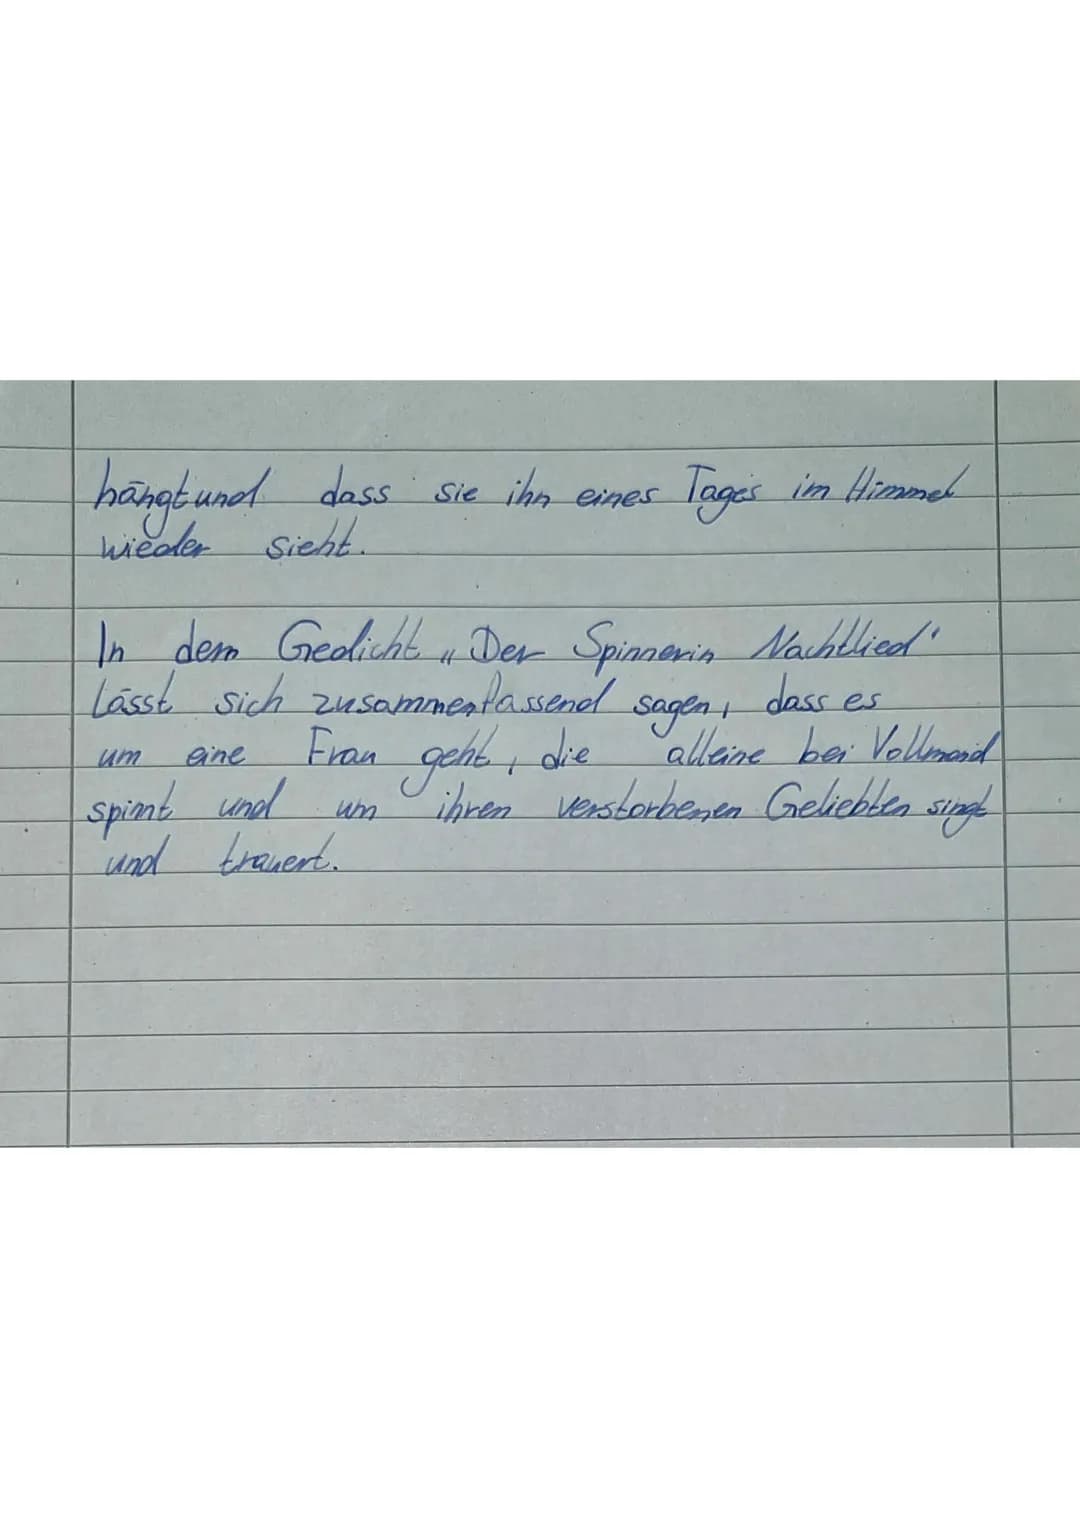 hängt und dass sie ihn eines Tages im Himmel
wieder sieht.
In dem Gedicht „Der Spinnerin Nachtlied"
lässt sich zusammenfassend sagen, dass es
um eine Frau geht, die alleine bei Vollmond
spinnt und um ihren verstorbenen Geliebten singt
und trauert.